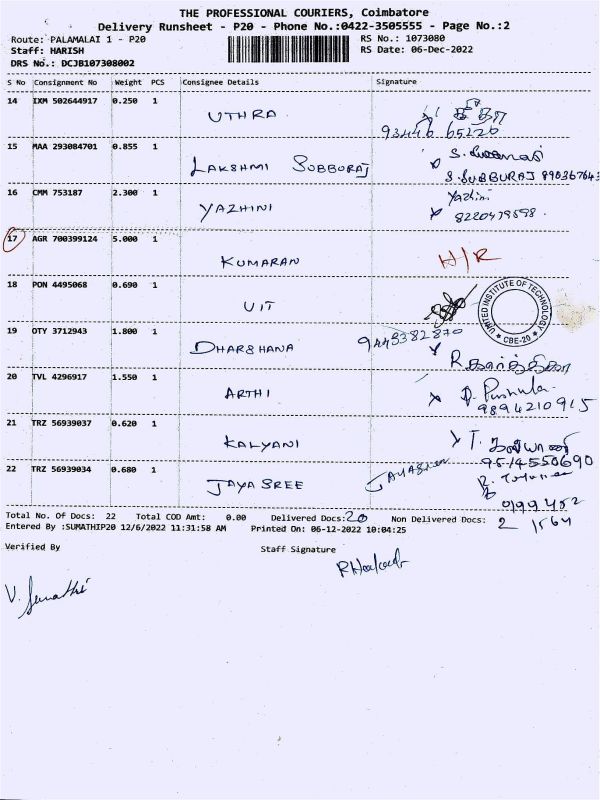 THE PROFESSIONAL COURIERS, Coimbatore
Delivery Runsheet - P20 - Phone No.:0422-3505555 - Page No.:2
Route: PALAMALAI 1 - P20
RS No.: 1073080
Staff: HARISH
RS Date: 06-Dec-2022
DRS No.: DCJB107308002
S No Consignment No Weight PCS Consignee Details Signature
14 IXM 502644917 0.250 1 UTHRA
93446 65220
15 MAA 293084701 0.855 1 LAKSHMI SUBBURAJ
S.SUBBURAJ 890367643
16 CMM 753187 2.300 1 YAZHINI Yazhini
8220479598.
17 AGR 700399124 5.000 1 KUMARAN H/R
18 PON 4495068 0.690 1 UIT
UNITED INSTITUTE OF TECHNOLOGY
CBE-20
19 OTY 3712943 1.800 1 DHARSHANA 9443382870
R கார்த்திகா
20 TVL 4296917 1.550 1 ARTHI
9894210915
21 TRZ 56939037 0.620 1 KALYANI T. கல்யாணி
9514550690
22 TRZ 56939034 0.680 1 JAYA SREE
Total No. Of Docs: 22 Total COD Amt: 0.00 Delivered Docs: 20 Non Delivered Docs: 2
Entered By :SUMATHIP20 12/6/2022 11:31:58 AM Printed On: 06-12-2022 10:04:25
Verified By Staff Signature
V. Sumathi